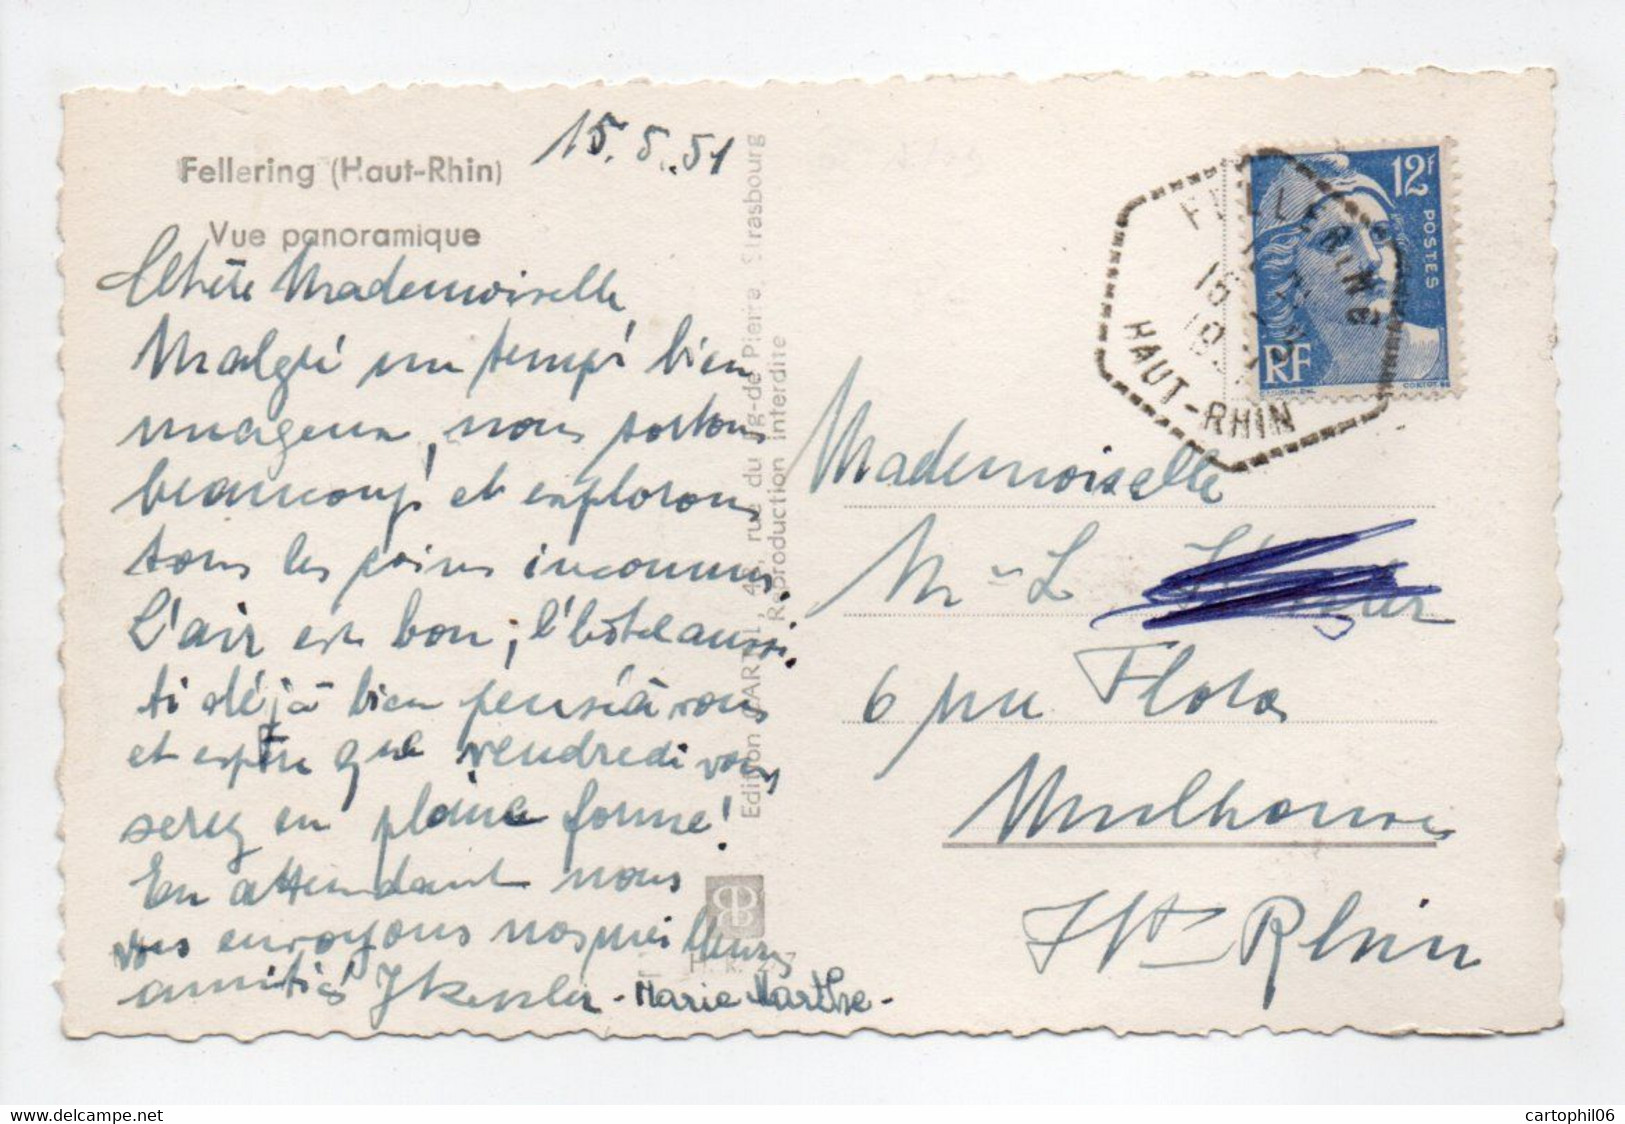 15.5.51
Fellering (Haut-Rhin)
Vue panoramique
Chère Mademoiselle,
Malgré un temps bien
nuageux, nous sortons
beaucoup et explorons
tous les coins inconnus.
L'air est bon; l'hôtel aussi.
déjà bien pensé à vous
et espère que vendredi vous
serez en pleine forme!
En attendant nous
vous envoyons nos meilleures
amitiés - Marie Marthe -
Edition d'ART 48, rue du Fg-de Pierre, Strasbourg
Reproduction interdite
12F
POSTES
RF
FELLERING
HAUT-RHIN
Mademoiselle
M-L
6 rue Flora
Mulhouse
Ht Rhin
cartophil06